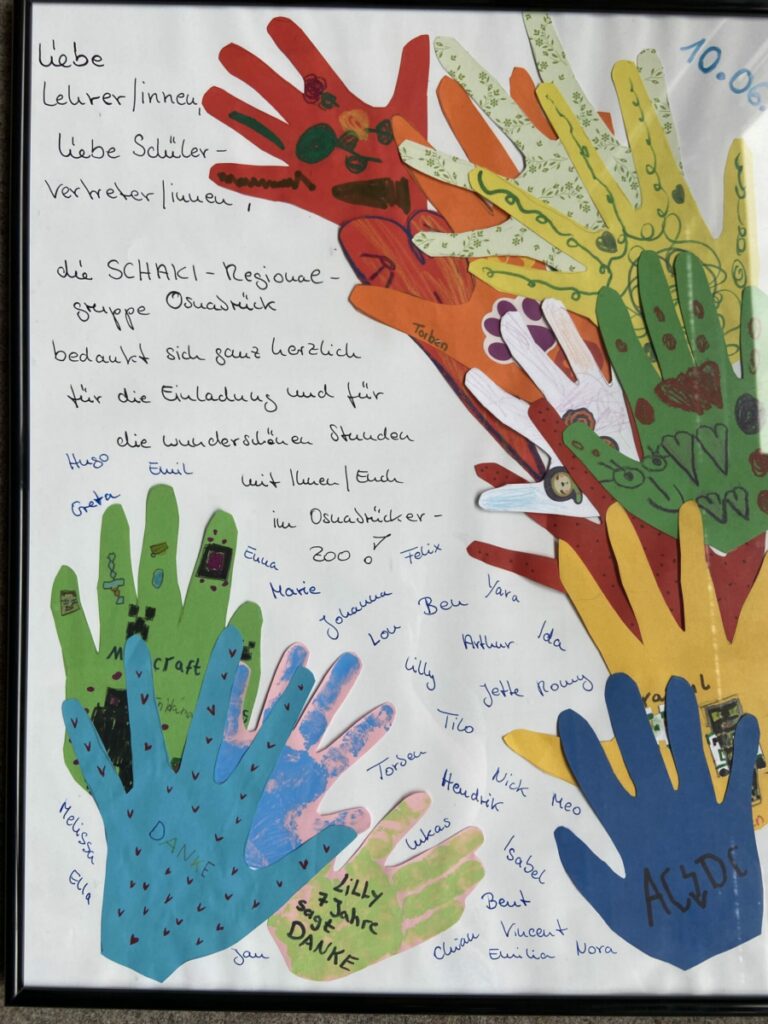 10.06.
Liebe
Lehrer/innen,
liebe Schüler-
vertreter/innen,
die SCHAKI-Regional-
gruppe Osnabrück
bedankt sich ganz herzlich
für die Einladung und für
die wunderschönen Stunden
mit Ihnen/Euch
im Osnabrücker-
Zoo!
Torben
Hugo
Emil
Greta
Enna
Marie
Felix
Johanna
Lou
Ben
Yara
Arthur
Ida
Lilly
Jette
Romy
Tilo
Torben
Hendrik
Nick
Meo
Lukas
Isabel
Bent
Vincent
Emilia
Nora
Jan
Melissa
Ella
DANKE
LiLLY
7 Jahre
sagt
DANKE
AC DC